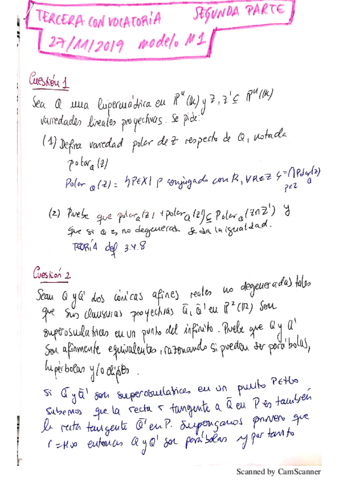 TERCERA CONVOCATORIA SEGUNDA PARTE
27/11/2019 modelo M1
Cuestión 1
Sea Q una hipermádrica en Pⁿ(K) y Z, Z' ⊆ Pⁿ(K)
variedades lineales proyectivas. Se pide:
(1) Defina variedad polar de Z respecto de Q, notada
polar_Q(Z)
Polar_Q(Z) = {P∈X | P conjugado con R, ∀R∈Z} = ∩ Polar_Q(P)
P∈Z
(2) Pruebe que polar_Q(Z) + polar_Q(Z') ⊆ Polar_Q(Z∩Z') y
que si Q es no degenerada se da la igualdad.
TEORÍA def 3.4.8
Cuestión 2
Sean Q y Q' dos cónicas afines reales no degeneradas tales
que sus clausuras proyectivas Q̄, Q̄' en P²(R) son
superosculatrices en un punto del infinito. Pruebe que Q y Q'
son afínmente equivalentes, razonando si pueden ser parábolas,
hipérbolas y/o elipses.
Si Q̄ y Q̄' son superosculatrices en un punto P∈H∞
sabemos que la recta r tangente a Q̄ en P es también
la recta tangente Q̄' en P. Supongamos primero que
r = H∞ entonces Q y Q' son parábolas y por tanto
Scanned by CamScanner